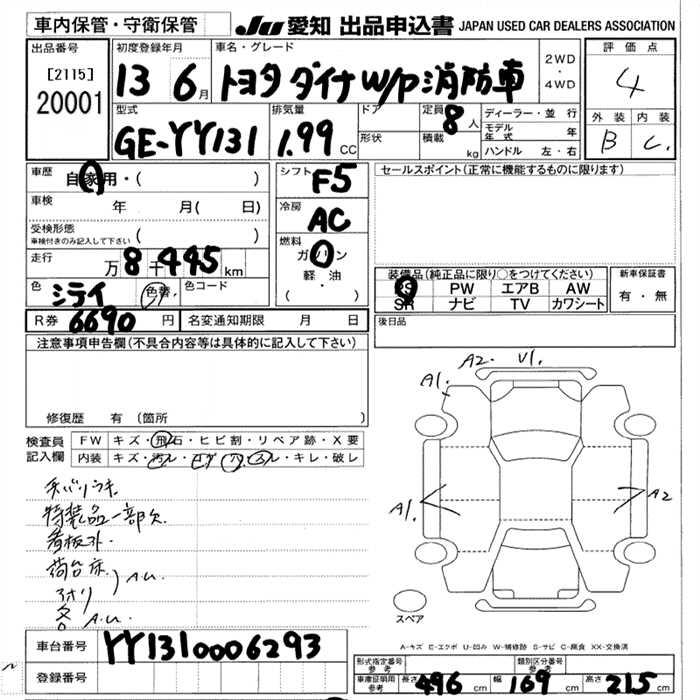 車内保管・守衛保管
JU 愛知 出品申込書 JAPAN USED CAR DEALERS ASSOCIATION
出品番号
[2115]
20001
初度登録年月
13 6月
車名・グレード
トヨタ ダイナ W/P 消防車
2WD
・
4WD
評価点
4
外装 内装
B C
型式
GE-YY131
排気量
1.99 CC
ドア
形状
定員
8人
積載
kg
ディーラー・並行
モデル年式 年
ハンドル 左・右
車歴
自家用・( )
車検
年 月( 日)
受検形態
車検付きのみ記入して下さい
( )
走行
万 8千445 km
色
シライ
色替
色コード
シフト
F5
冷房
AC
燃料
ガソリン
軽・油
( )
セールスポイント(正常に機能するものに限ります)
装備品(純正品に限り○をつけてください)
PS PW エアB AW
SR ナビ TV カワシート
新車保証書
有・無
R券 6690 円
名変通知期限 月 日
後日品
注意事項申告欄(不具合内容等は具体的に記入して下さい)
修復歴 有 (箇所 )
検査員
記入欄
FW キズ・飛石・ヒビ割・リペア跡・X要
内装 キズ・汚レ・コゲ・穴・スレ・キレ・破レ
特装品一部欠
看板外
荷台床
アオリ
A.U.
A.U.
A1.
A2.
V1.
A1.
A2
スペア
A-キズ E-エクボ U-凹み W-補修跡 S-サビ C-腐食 XX-交換済
車台番号
YY1310006293
登録番号
形式指定番号
参考
類別区分番号
参考
車庫証明用
参考
長さ 496 cm
幅 169 cm
高さ 215 cm